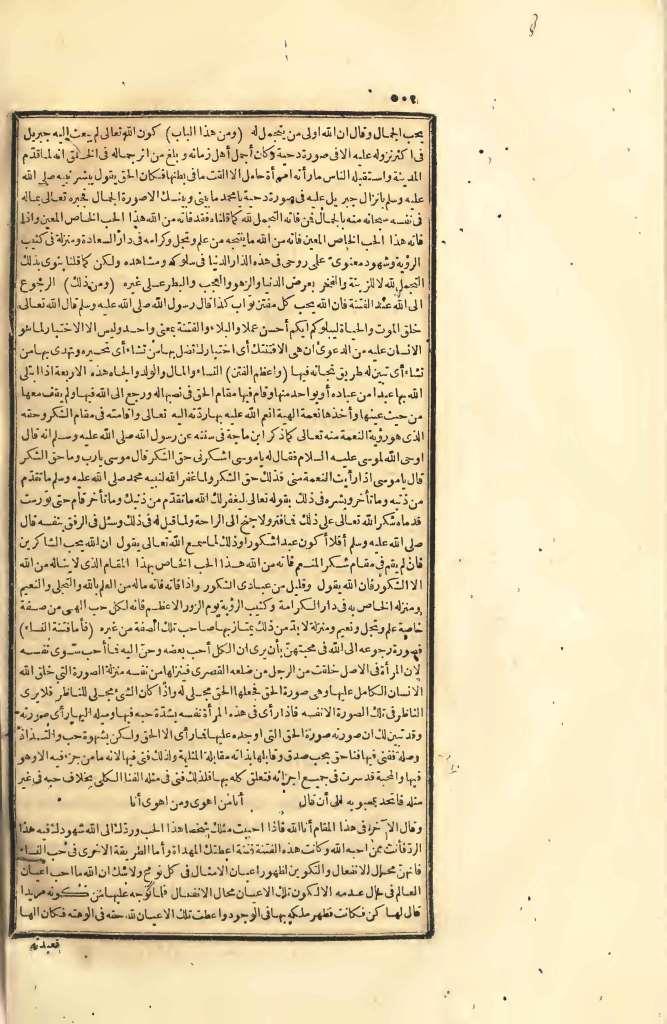 ٥٠٢
يحب الجمال وقال ان الله اولى من يتجمل له (ومن هذا الباب) كون الله تعالى لم يبعث اليه جبريل
فى اكثر نزوله عليه الا فى صورة دحية وكان أجمل أهل زمانه وبلغ من اثر جماله فى الخلق انه لما قدم
المدينة واستقبله الناس ما رأته امرأة حامل الا القت ما فى بطنها فكان الحق يقول يبشر نبيه صلى الله
عليه وسلم بانزال جبريل عليه فى صورة دحية يا محمد ما بينى وبينك الا صورة الجمال فخبره تعالى بما له
فى نفسه سبحانه منه بالجمال فمن فاته التجمل لله كما قلناه فقد فاته من الله هذا الحب الخاص المعين واذا
فاته هذا الحب الخاص المعين فاته من الله ما ينتجه من علم وتجل وكرامة فى دار السعادة ومنزلة فى كثيب
الرؤية وشهود معنوى على روحى فى هذه الدار الدنيا فى سلوكه ومشاهده ولكن كما قلنا ينوى بذلك
التجمل لله لا للزينة والفخر بعرض الدنيا والزهو والعجب والبطر على غيره (ومن ذلك) الرجوع
الى الله عند الفتنة فان الله يحب كل مفتن تواب كذا قال رسول الله صلى الله عليه وسلم قال الله تعالى
خلق الموت والحياة ليبلوكم ايكم أحسن عملا والبلاء والفتنة بمعنى واحد وليس الا الاختبار لما هو
الانسان عليه من الدعوى ان هى الا فتنتك أى اختبارك تضل بها من تشاء أى تحيره وتهدى بها من
تشاء أى تبين له طريق نجاته فيها (واعظم الفتن) النساء والمال والولد والجاه هذه الاربعة اذا ابتلى
الله بها عبدا من عباده أو بواحد منها وقام فيها مقام الحق فى نصبها له ورجع الى الله فيها ولم يقف معها
من حيث عينها وأخذها نعمة الهية انعم الله عليه بها ردته اليه تعالى واقامته فى مقام الشكر وحقه
الذى هو رؤية النعمة منه تعالى كما ذكر ابن ماجة فى سننه عن رسول الله صلى الله عليه وسلم انه قال
اوحى الله لموسى عليه السلام فقال له يا موسى اشكرنى حق الشكر قال موسى يا رب وما حق الشكر
قال يا موسى اذا رأيت النعمة منى فذلك حق الشكر ولما غفر الله لنبيه محمد صلى الله عليه وسلم ما تقدم
من ذنبه وما تأخر وبشره فى ذلك بقوله تعالى ليغفر لك الله ما تقدم من ذنبك وما تأخر قام حتى تورمت
قدماه شكر الله تعالى على ذلك فما فتر ولا جنح الى الراحة ولما قيل له فى ذلك وسئل فى الرفق بنفسه قال
صلى الله عليه وسلم أفلا أكون عبدا شكورا وذلك لما سمع الله تعالى يقول ان الله يحب الشاكرين
فان لم يقم فى مقام شكر المنعم فاته من الله هذا الحب الخاص بهذا المقام الذى لا يناله من الله
الا الشكور فان الله يقول وقليل من عبادى الشكور واذا فاته فاته ماله من العلم بالله والتجلى والنعيم
ومنزله الخاص به فى دار الكرامة وكثيب الرؤية يوم الزور الاعظم فانه لكل حب الهى من صفة
خاصة علم وتجل ونعيم ومنزلة لابد من ذلك يمتاز بها صاحب تلك الصفة من غيره (فأما فتنة النساء)
فصورة رجوعه الى الله فى محبتهن بأن يرى ان الكل أحب بعضه وحن اليه فما أحب سوى نفسه
لان المرأة فى الاصل خلقت من الرجل من ضلعه القصرى فينزلها من نفسه منزلة الصورة التى خلق الله
الانسان الكامل عليها وهى صورة الحق فجعلها الحق مجلى له واذا كان الشئ مجلى للناظر فلا يرى
الناظر فى تلك الصورة الا نفسه فاذا رأى فى هذه المرأة نفسه بشدة حبه فيها وميله اليها رأى صورته
وقد تبين لك ان صورته صورة الحق التى اوجده عليها فما رأى الا الحق ولكن بشهوة حب والتذاذ
وصلة ففنى فيها فنا حق بحب صدق وقابلها بذاته مقابلة المثلية ولذلك فنى فيها لانه ما من جزء فيه الا وهو
فيها والمحبة قد سرت فى جميع اجزائه فتعلق كله بها فلذلك فنى فى مثله الفنا الكلى بخلاف حبه فى غير
مثله فاتحد بمحبوبه الى أن قال أنا من اهوى ومن اهوى أنا
وقال الآخر فى هذا المقام أنا الله فاذا احببت مثلك شخصا هذا الحب وردك الى الله شهودك فيه هذا
الرد فأنت ممن احبه الله وكانت هذه الفتنة فتنة اعطتك المهداة وأما الطريقة الاخرى فى حب النساء
فانهن محال الانفعال والتكوين لظهور اعيان الامثال فى كل نوع ولا شك ان الله ما احب اعيان
العالم فى حال عدمه الا لكون تلك الاعيان محال الانفعال فلما توجه عليها من كونه مريدا
قال لها كن فكانت فظهر ملكه بها فى الوجود واعطت تلك الاعيان لله حقه فى الوهته فكان الها
فعبدته